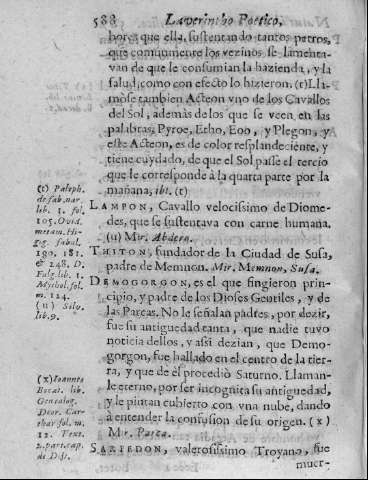 588 Laverintho Poetico,
bores que ella, sustentando tantos perros,
que comunmente los vezinos se lamenta-
van de que le consumian la hazienda, y la
salud, como con efecto lo hizieron. (t) Lla-
mòse tambien Acteon vno de los Cavallos
del Sol, ademàs de los que se veen en las
palabras, Pyroe, Etho, Eoo, y Plegon, y
este Acteon, es de color resplandeciente, y
tiene cuydado, de que el Sol passe el tercio
que le corresponde à la quarta parte por la
mañana, ibi. (t)
LAMPON, Cavallo velocissimo de Diome-
des, que se sustentava con carne humana.
(u) Mir. Abdero.
THITON, fundador de la Ciudad de Susa,
padre de Memnon. Mir. Memnon, Susa.
DEMOGORGON, es el que fingieron prin-
cipio, y padre de los Dioses Gentiles, y de
las Parcas. No le señalan padres, por dezir,
fue su antiguedad tanta, que nadie tuvo
noticia dellos, y assi dezian, que Demo-
gorgon, fue hallado en el centro de la tier-
ra, y que de èl procediò Saturno. Llaman-
le eterno, por ser incognita su antiguedad,
y le pintan cubierto con vna nube, dando
à entender la confusion de su origen. (x)
Mir. Parca.
SARPEDON, valerosissimo Troyano, fue
muer-
(t) Paleph.
de fab. nar.
lib. 1. fol.
105. Ovid.
metam. Hi-
gig. fabul.
190. 181.
& 248. D.
Fulg. lib. 1.
Mythol. fol.
m. 124.
(u) Silv.
lib. 9.
(x) Ioannes
Bocat. lib.
Genealog.
Deor. Car-
thar fol. m.
12. Text.
2. part. cap.
de Dijs.